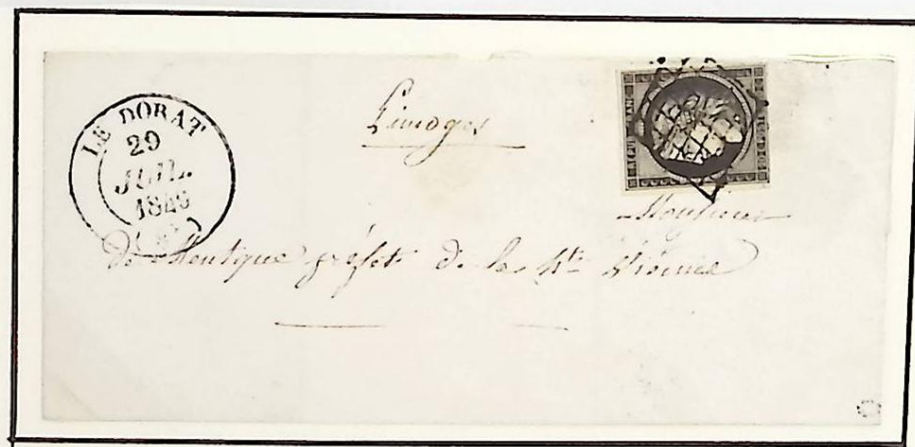 LE DORAT
29
JUIL.
1849
Limoges
REPUB FRANC
Monsieur
De Mentque préfet de la Hte Vienne